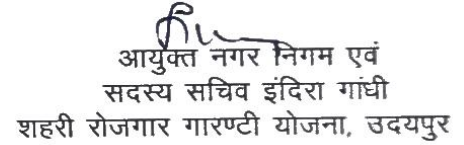 आयुक्त नगर निगम एवं
सदस्य सचिव इंदिरा गांधी
शहरी रोजगार गारण्टी योजना, उदयपुर